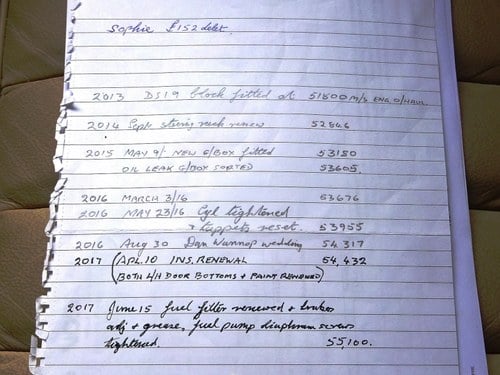 Sophie £152 debt.
2013 DS19 block fitted at 51800 M/S ENG. O/HAUL
2014 Sept steering rack renew 52846
2015 MAY 9/ NEW G/BOX fitted 53180
OIL LEAK G/BOX SORTED 53605
2016 MARCH 3/16 53676
2016 MAY 23/16 Cyl tightened
+ tappets reset. 53955
2016 Aug 30 Dan wedding 54,317
2017 (APL.10 INS. RENEWAL 54,432
(BOTH L/H DOOR BOTTOMS + PAINT RENEWED)
2017 June 15 fuel filter renewed + brakes
adj + grease, fuel pump diaphram screws
tightened. 55,100.